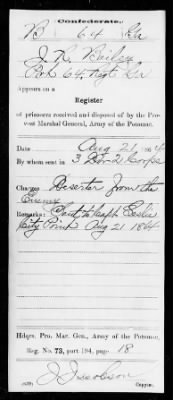 Confederate.
B 64 Ga
J. R. Bailey
Pvt 64 Regt Ga
Appears on a
Register
of prisoners received and disposed of by the Pro-
vost Marshal General, Army of the Potomac.
Date Aug 21, 1864
By whom sent in 3 Div 2 Corps
Charges Deserter from the
Enemy
Remarks: Sent to Capt Leslie
City Point Aug 21 1864
Hdqrs. Pro. Mar. Gen., Army of the Potomac.
Reg. No. 73, part 194, page 18
J Jacobson
Copyist.